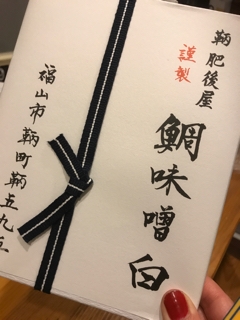 鞆肥後屋
謹製
鯛味噌 白
福山市鞆町鞆五九五